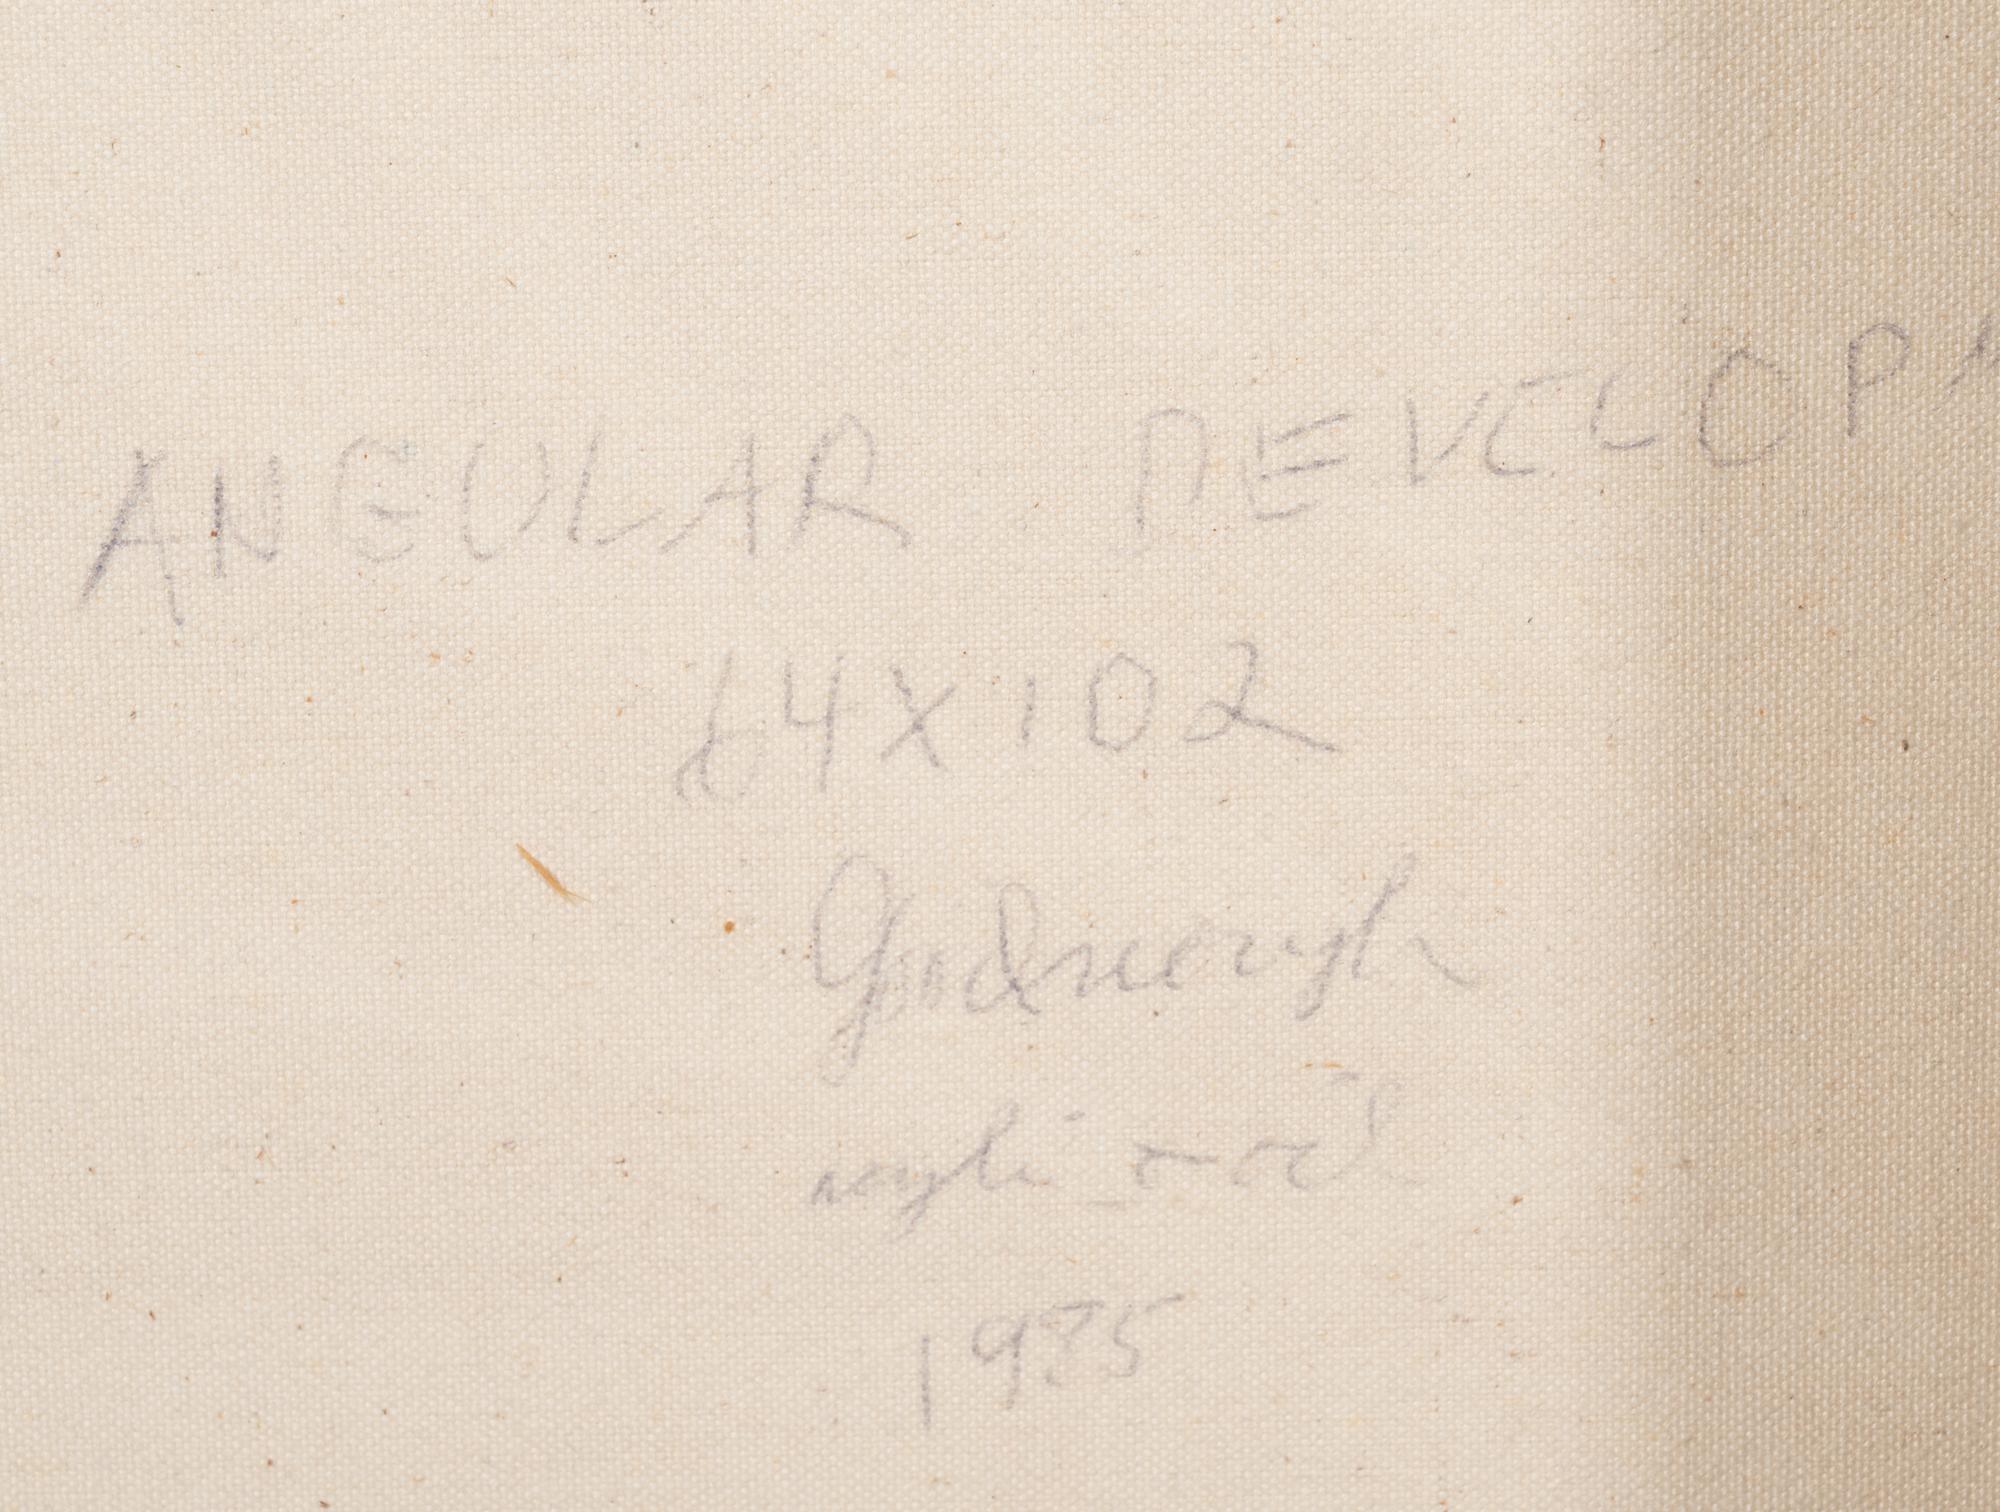 ANGULAR DEVELOP
64X102
Goodnough
acrylic + oil
1985